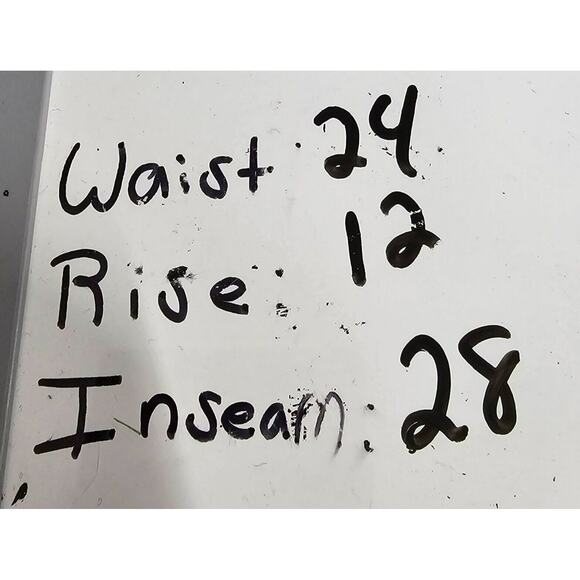 Waist: 24
Rise: 12
Inseam: 28